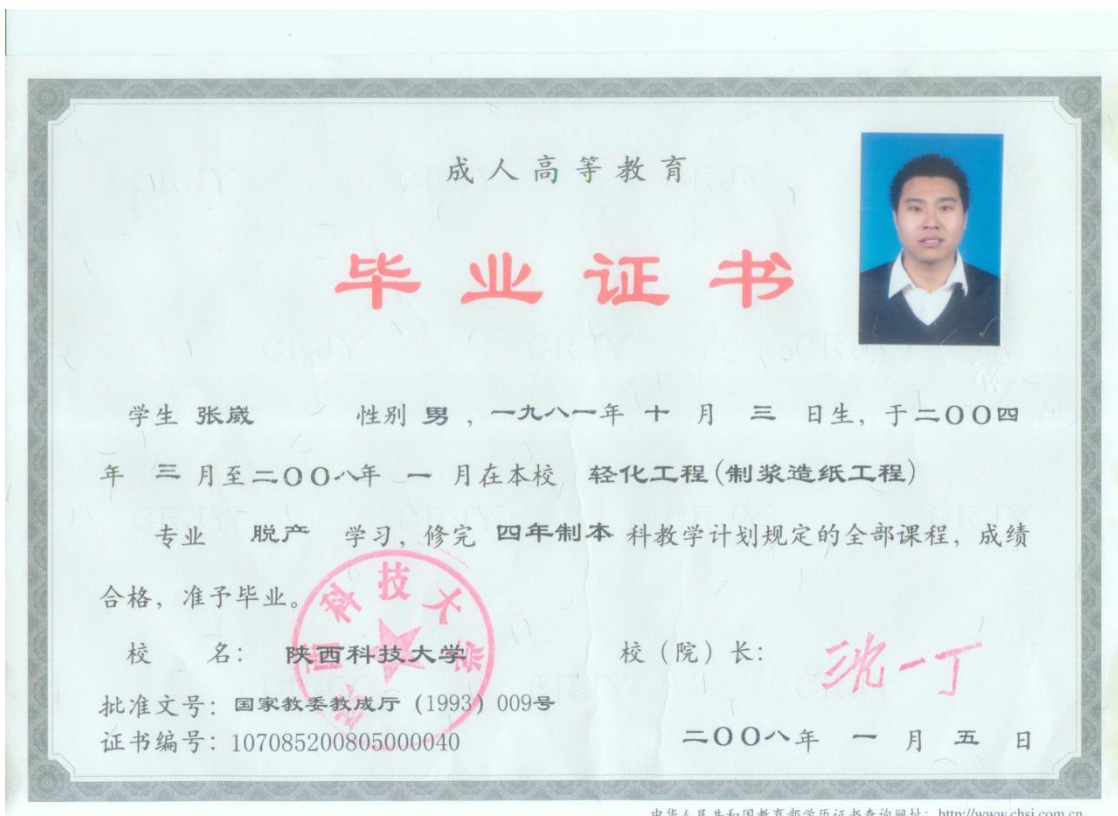 成人高等教育
毕业证书
学生 张崴 性别 男 ，一九八一年 十 月 三 日生，于二〇〇四
年 三 月至二〇〇八年 一 月在本校 轻化工程(制浆造纸工程)
专业 脱产 学习，修完 四年制本 科教学计划规定的全部课程，成绩
合格，准予毕业。
陕西科技大学
校 名： 陕西科技大学 校（院）长： 沈一丁
批准文号：国家教委教成厅 (1993) 009号
证书编号：107085200805000040 二〇〇八年 一 月 五 日
中华人民共和国教育部学历证书查询网址：http://www.chsi.com.cn